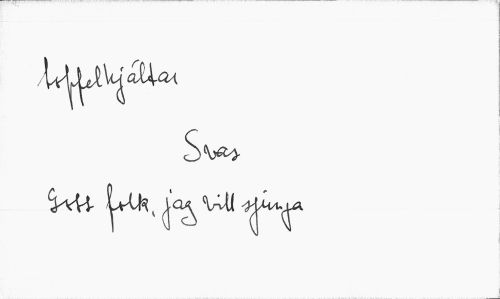 toffelhjältar
Svas
Gott folk, jag vill sjunga